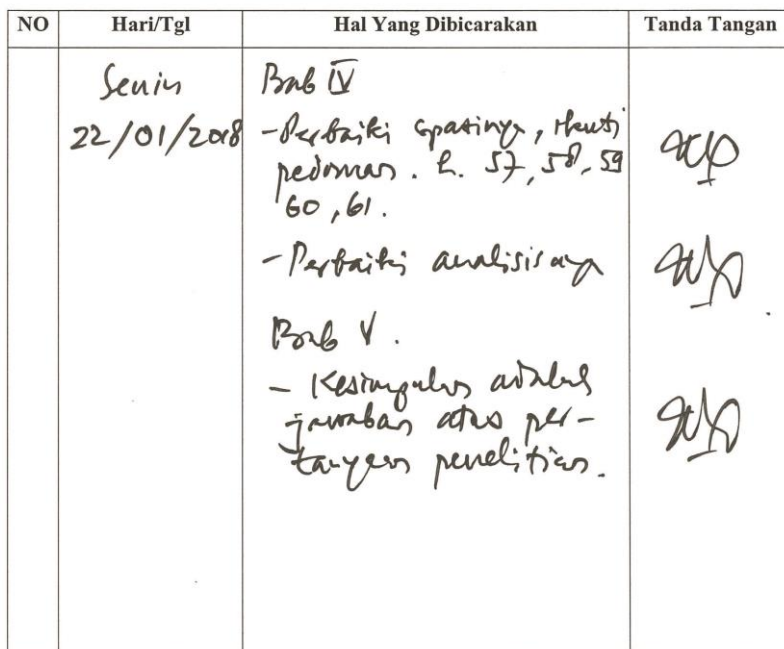 NO Hari/Tgl Hal Yang Dibicarakan Tanda Tangan
Senin Bab IV
22/01/2018 - Perbaiki spasinya, ikuti
pedoman. h. 57, 58, 59
60, 61.
- Perbaiki analisisnya
Bab V.
- Kesimpulan adalah
jawaban atas per-
tanyaan penelitian.